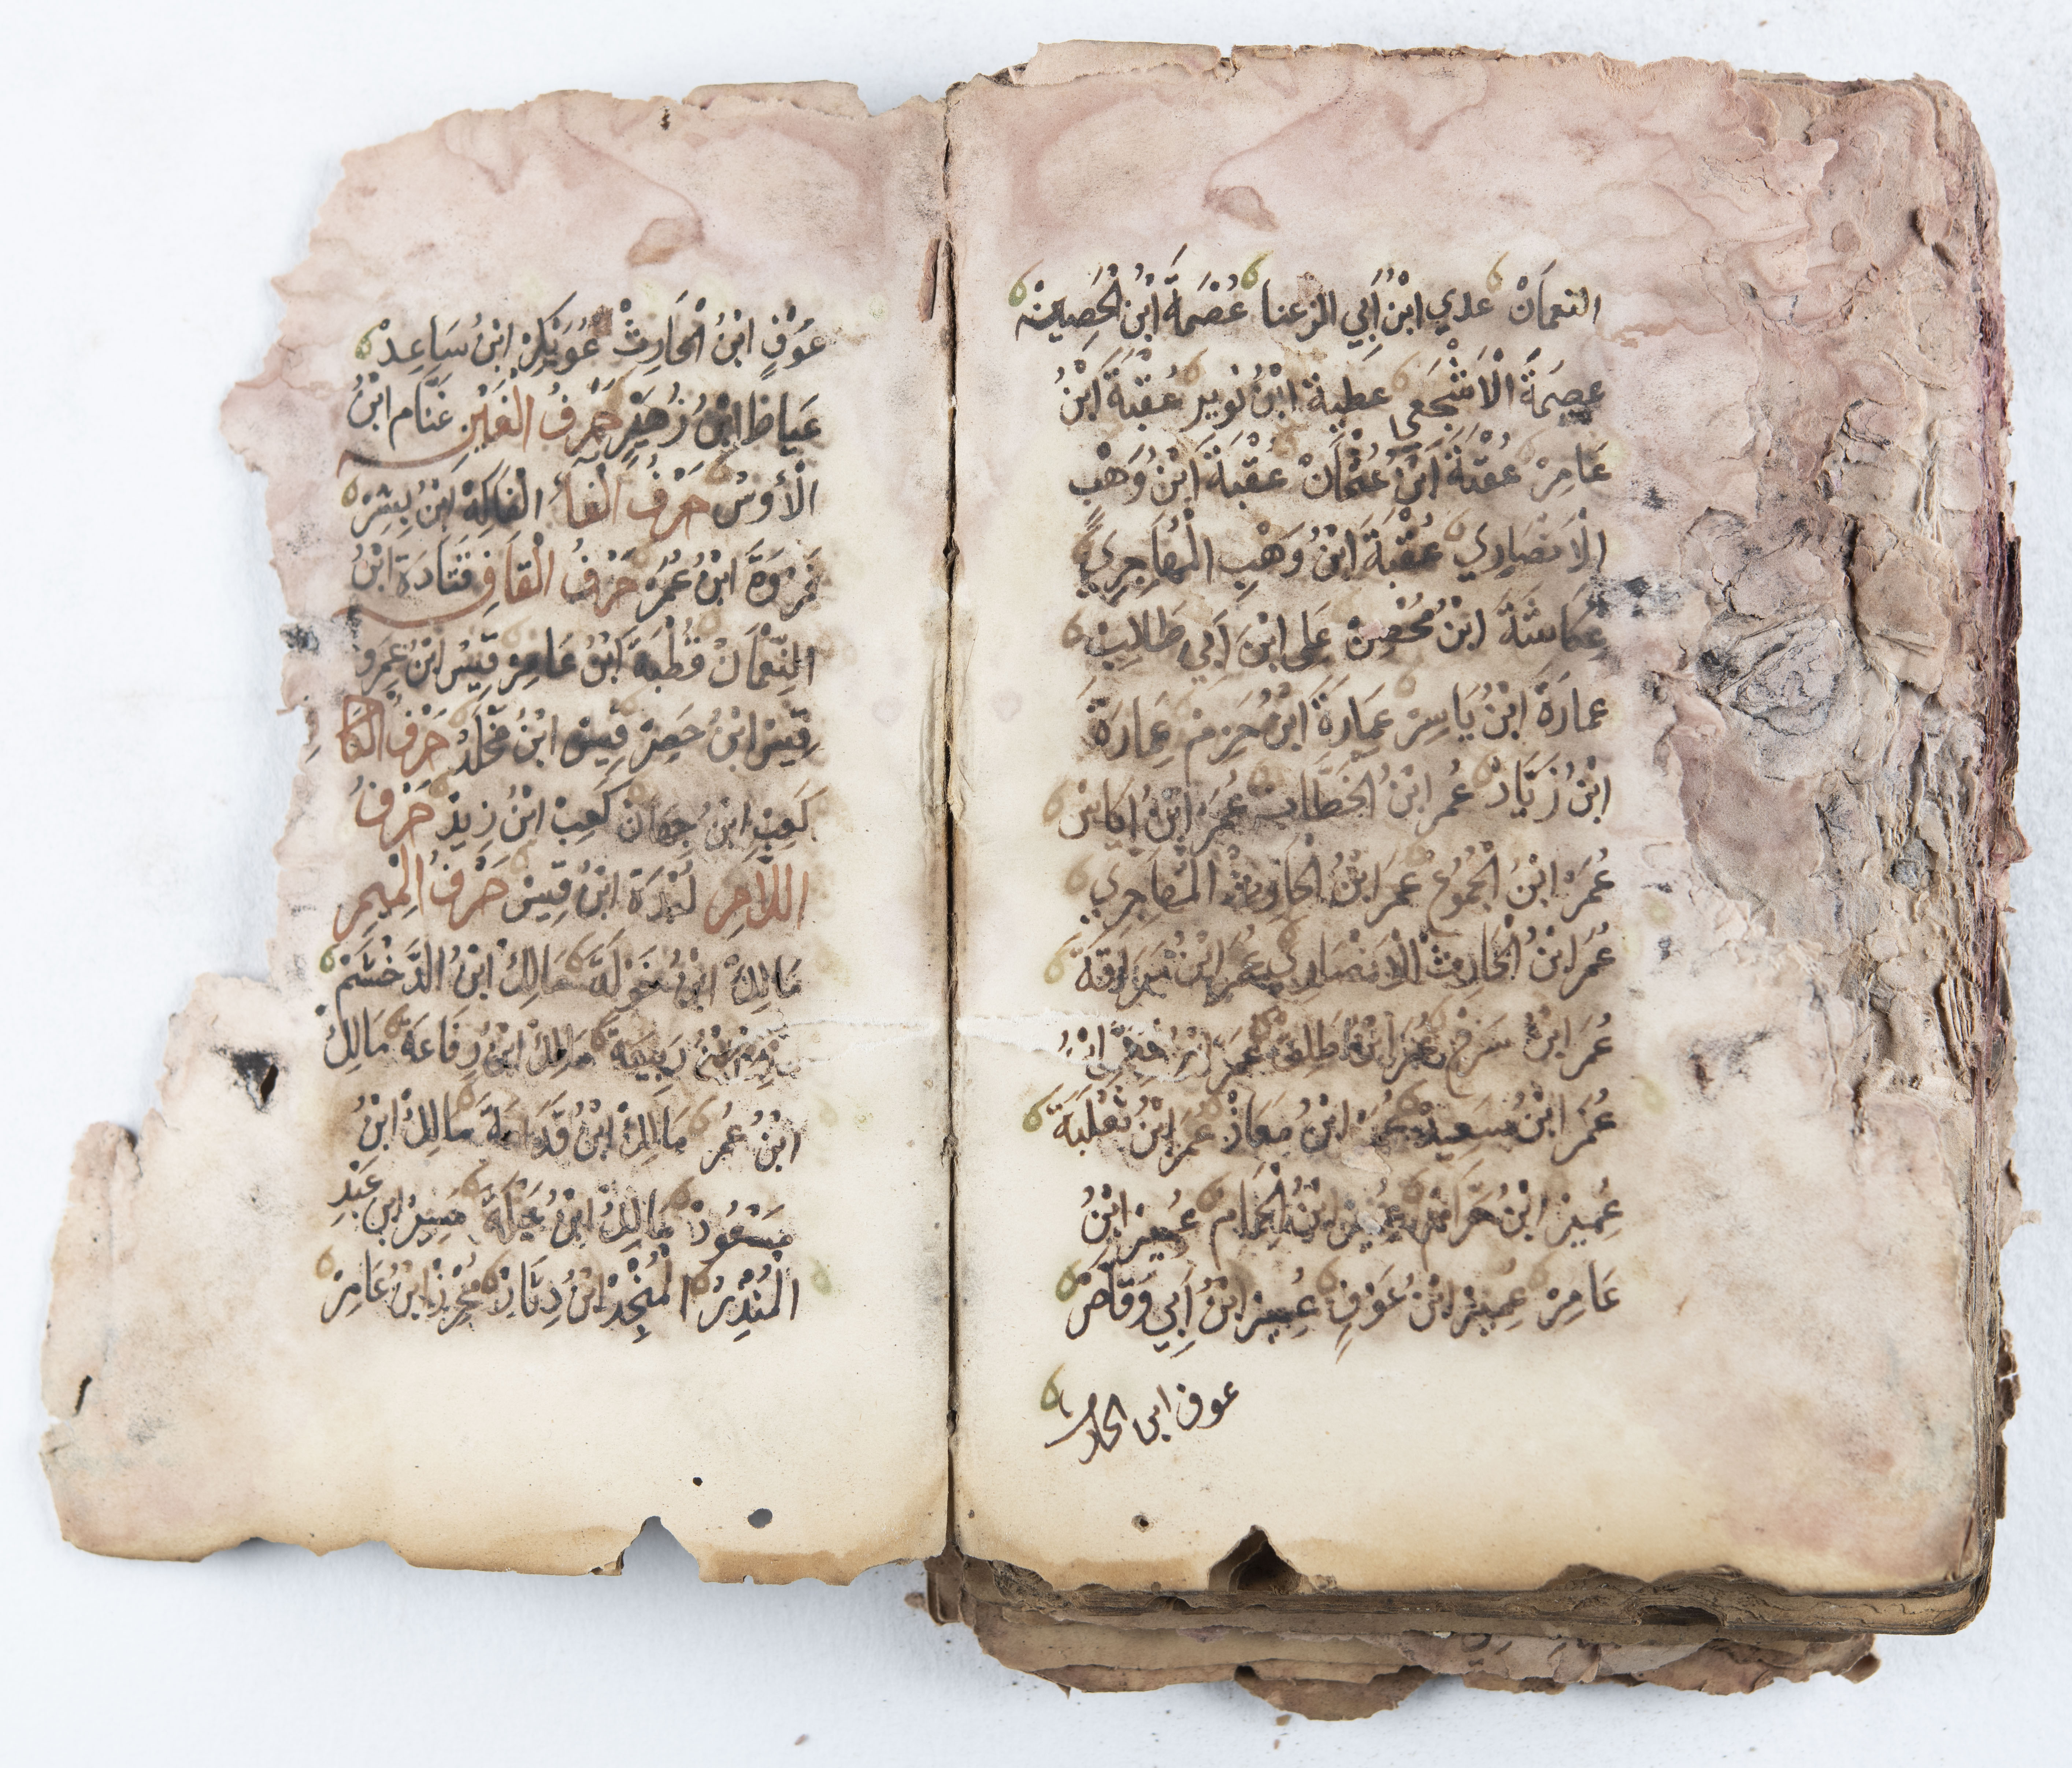 النعمان عدي ابن أبي الزعنا عُصَمَةُ ابْنُ الحُصَيِنْ
عِصِمَةُ الْاَشْجَعِي عطية ابْنُ نُوَيِرٍ عُقْبَةُ ابْنُ
عَامِرْ عُقْبَةُ ابْنُ عُثْمَانْ عُقْبَةُ ابْنُ وَهْبِ
الْاَنصَارِي عُقْبَةُ ابْنُ وَهْبِ الْمُهَاجِرِي
عكاشَةُ ابْنُ مُحْصِنْ عَلِي ابْنَ أَبِي طَالِبْ
عمارَةُ ابْنُ يَاسِرْ عمَارةُ ابْنُ حَزِمْ عِمَارَةُ
ابْنُ زَيَّادْ عُمر ابْنُ الخَطَّابْ عُمَرَ ابْنُ ايَاسْ
عُمَرُ ابْنُ الْجَمُوعْ عُمَرَ ابْنُ الْحَارِثْ الْمُهَاجِرِي
عُمَرَ ابْنُ الْحَارِثْ الْاَنْصَارِي عُمَرَ ابْنُ سُرَاقَةَ
عُمَرَ ابْنُ سَرْحْ عُمَرَ ابْنُ طَلِقْ عُمَرَ ابْنُ
عُمَرَ ابْنُ سَعِيدْ عُمَرُ ابْنُ مُعَاذْ عُمَرَ ابْنُ ثَعْلَبَةَ
عُمَيِرْ ابْنُ حَرَامْ عُمَيِرْ ابْنُ الْحُمَامِ عُمَيِرْ ابْنُ
عَامِرْ عُمِيِرْ ابْنُ عَوْفٍ عُمِيِرْ ابْنُ أَبِي وَقَاصْ
عوف ابن الحارث
عَوْفٍ ابْنُ الْحَارِثْ عُوَيْكِرْ ابْنُ سَاعِدْ
عَيَاظ ابْنُ زُهَيْرٍ حَرْفُ الْغَيْنِ غَنَّام ابْنُ
الْأَوْسْ حَرْفُ الْفَاءْ الْفَاكِهْ ابْنُ بِشِرْ
فَرْوَةُ ابْنُ عُمَرْ حَرْفُ الْقَافِ قَتَادَةَ ابْنُ
النِّعْمَانْ قُطْبَةَ ابْنُ عَامِرْ قَيْسُ ابْنُ عَمِرو
قَيْسْ ابْنُ حِصِنْ قَيْسْ ابْنُ مُخْلَدْ حَرْفُ الْكَا
كَعِبْ ابْنُ جِمَانْ كَعِبْ ابْنُ زِيدْ حَرْفُ
اللاَّمِ لُبْدَةَ ابْنُ قِيسْ حَرْفُ الْمِيمِ
مَالِكْ ابْنُ خَوْلَةَ مَالِكْ ابْنُ الدَّخْشَمْ
ابْنُ رَبِيعَةَ مَالِكْ ابْنُ رِفَاعَةَ مَالِكْ
ابْنُ عُمَرُ مَالِكْ ابْنُ قُدَامَةَ مَالِكْ ابْنُ
مَسْعُودْ مَالِكْ ابْنُ مُبَشِرْ ابن عَبْدِ
الْمُنْذِرْ الْمُجَذِّرْ ابْنُ دِثَارْ مُحْرِزْ ابْنُ عَامِرْ